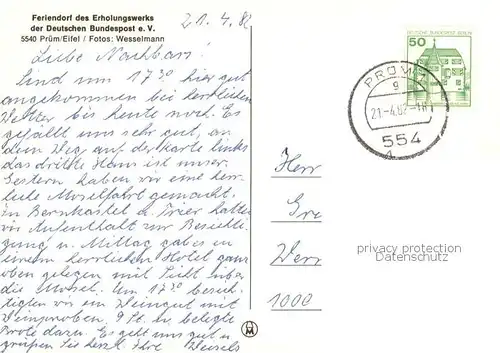 Feriendorf des Erholungswerks
der Deutschen Bundespost e. V.
5540 Prüm/Eifel / Fotos: Wesselmann
21.4.82
Liebe Nachbarn!
Sind um 17³⁰ hier gut
angekommen bei herrlichem
Wetter bis heute noch. Es
gefällt uns sehr gut, an
dem Weg auf der Karte links
das dritte Haus ist unser.
Gestern haben wir eine herr-
liche Moselfahrt gemacht.
in Bernkastel u. Trier hatten
wir Aufenthalt zur Besichti
gung u. Mittag gab es in
einem herrlichen Hotel ganz
oben gelegen mit Sicht über
die Mosel. Um 17³⁰ besich-
tigten wir ein Weingut mit
Weinproben. 9 St. u. belegte
Brote dazu. Es geht uns gut u
grüßen Sie herzl. Ihre
DEUTSCHE BUNDESPOST BERLIN
50
PRÜM
g
21.-4.82.-18
554
Herr
Gre
Wer
1000
privacy protection
Datenschutz